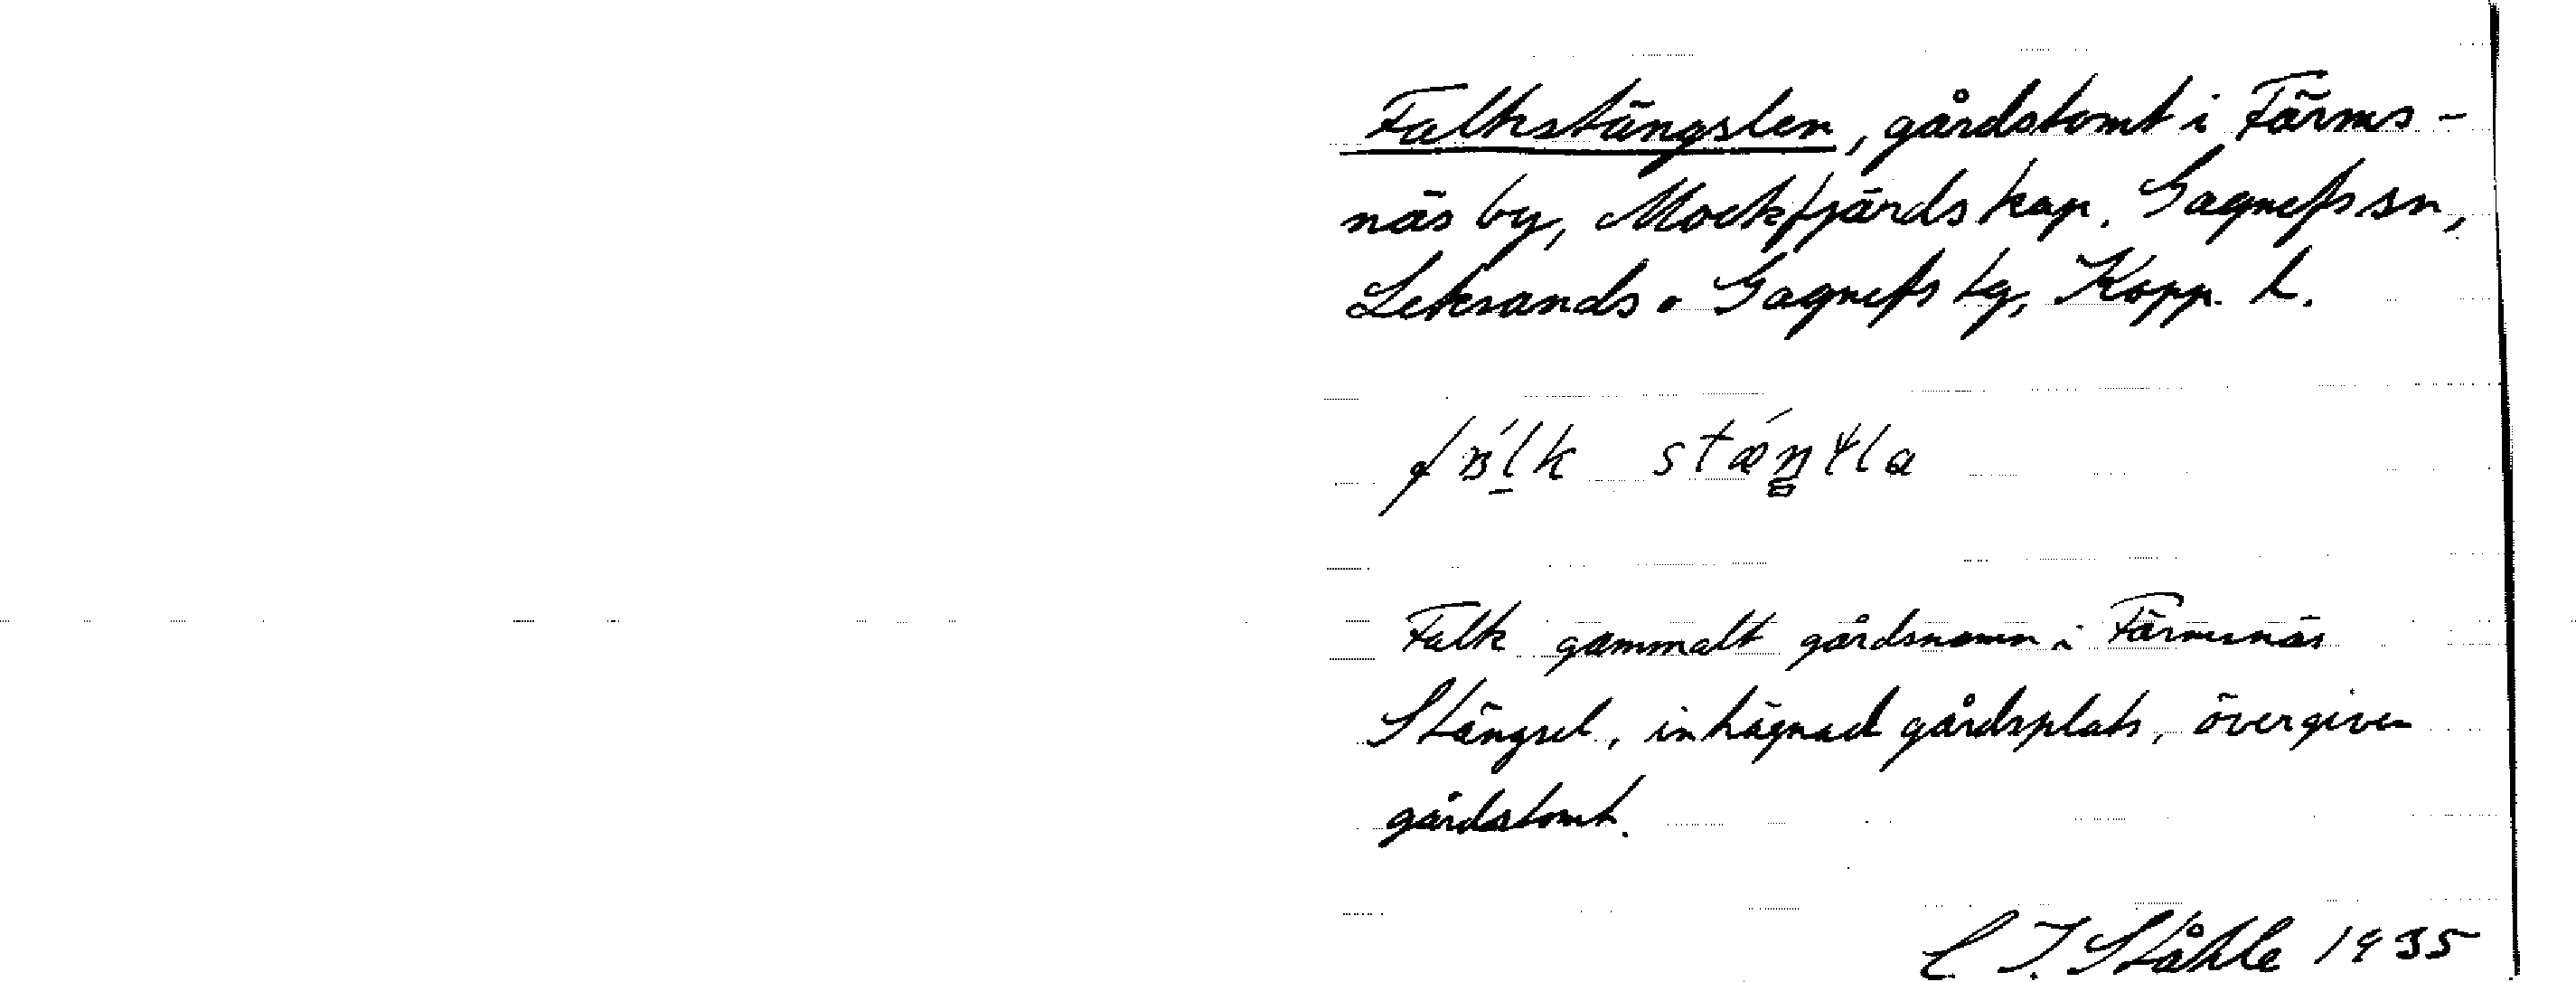 Falkstängslen, gårdstomt i Färms-
näs by, Mockfjärds kap. Gagnefs sn,
Leksands o Gagnefs tg, Kopp. L.
Falk gammalt gårdsnamn i Färmsnäs
Stängsel, inhägnad gårdsplats, övergiven
gårdstomt.
C. I. Ståhle 1935